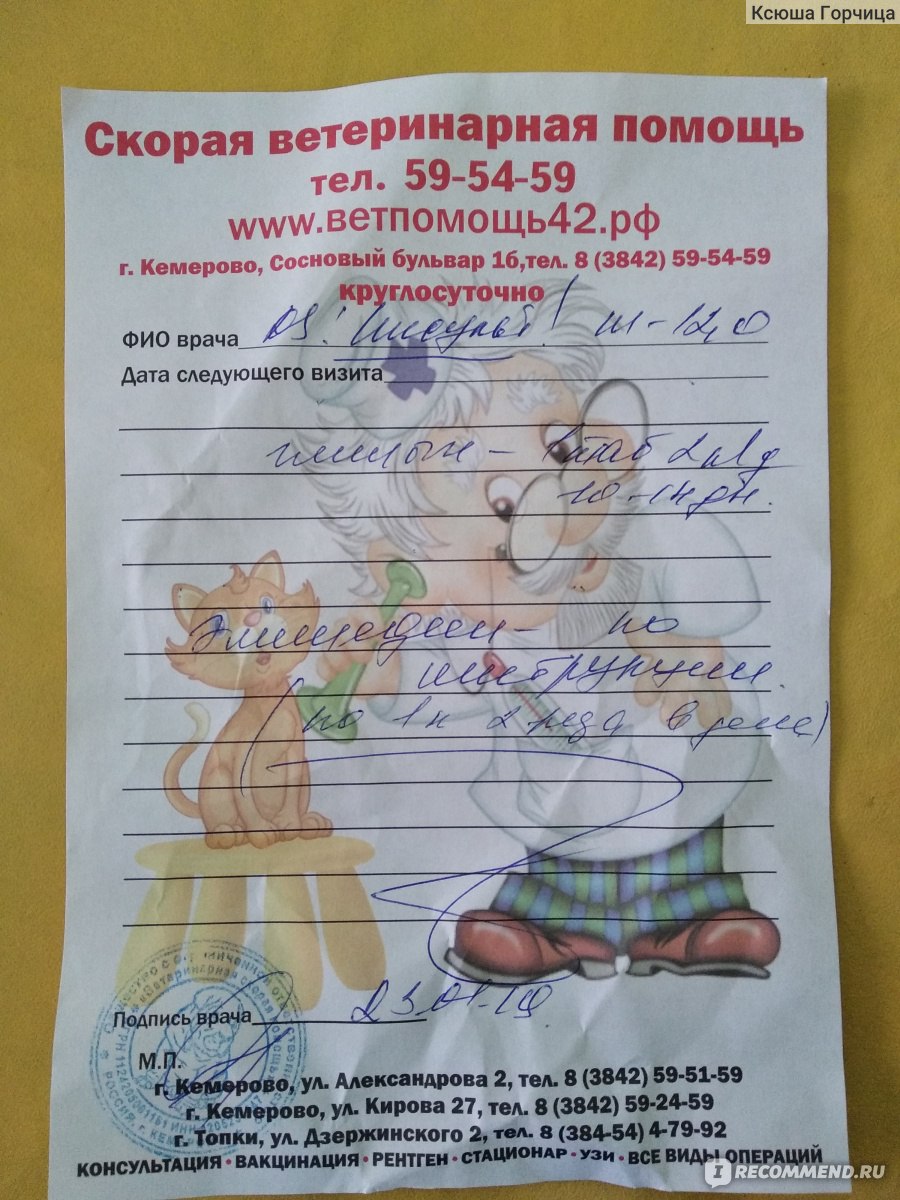 Ксюша Горчица
Скорая ветеринарная помощь
тел. 59-54-59
www.ветпомощь42.рф
г. Кемерово, Сосновый бульвар 1б,тел. 8 (3842) 59-54-59
круглосуточно
ФИО врача DS: Инсульт! т-12,0
Дата следующего визита
1 таб 2 р/д
10-14 дн.
по
инструкции.
(по 1 к 2 раза в день)
Подпись врача 23.01.19
М.П.
г. Кемерово, ул. Александрова 2, тел. 8 (3842) 59-51-59
г. Кемерово, ул. Кирова 27, тел. 8 (3842) 59-24-59
г. Топки, ул. Дзержинского 2, тел. 8 (384-54) 4-79-92
КОНСУЛЬТАЦИЯ • ВАКЦИНАЦИЯ • РЕНТГЕН • СТАЦИОНАР • УЗИ • ВСЕ ВИДЫ ОПЕРАЦИЙ
IRECOMMEND.RU